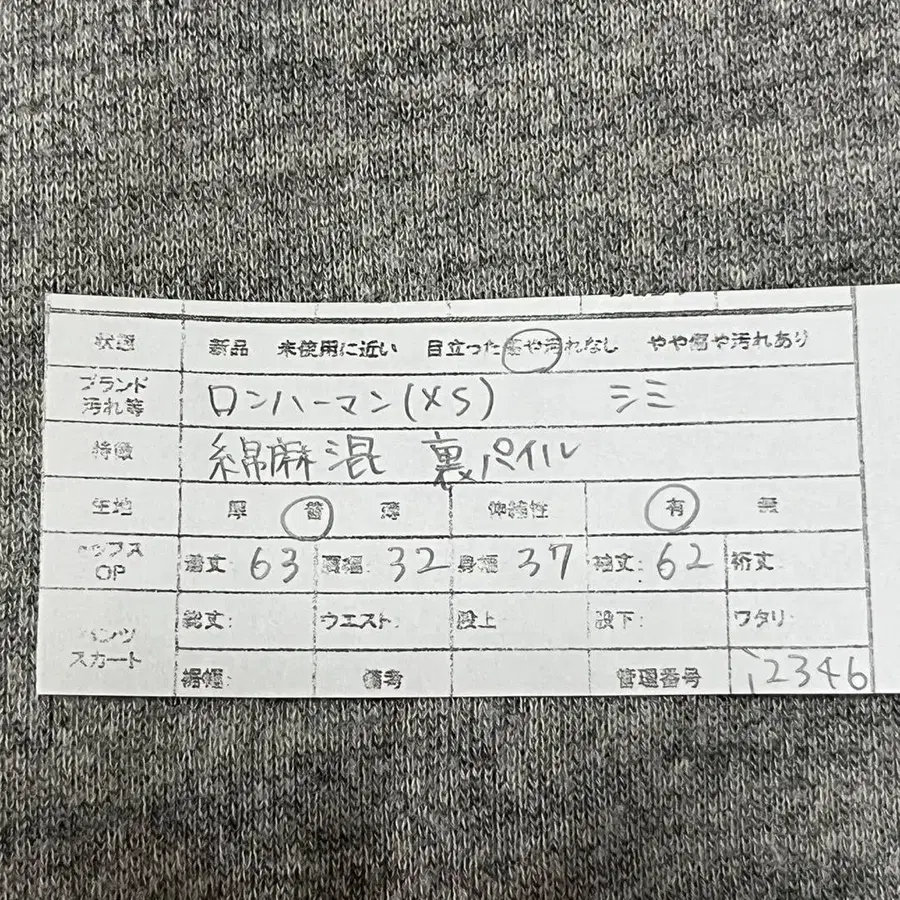 状態 新品 未使用に近い 目立った傷や汚れなし やや傷や汚れあり
ブランド
汚れ等 ロンハーマン(XS) シミ
特徴 綿麻混 裏パイル
生地 厚 普 薄 伸縮性 有 無
トップス
OP 着丈: 63 肩幅: 32 身幅: 37 袖丈: 62 裄丈:
パンツ
スカート 総丈: ウエスト: 股上 股下: ワタリ:
裾幅: 備考 管理番号 i2346